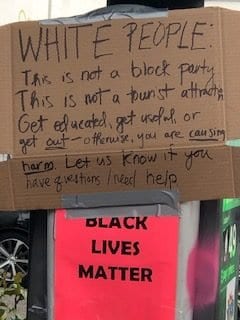 WHITE PEOPLE:
This is not a block party
This is not a tourist attraction
Get educated, get useful, or
get out - otherwise, you are causing
harm. Let us know if you
have questions / need help
BLACK
LIVES
MATTER